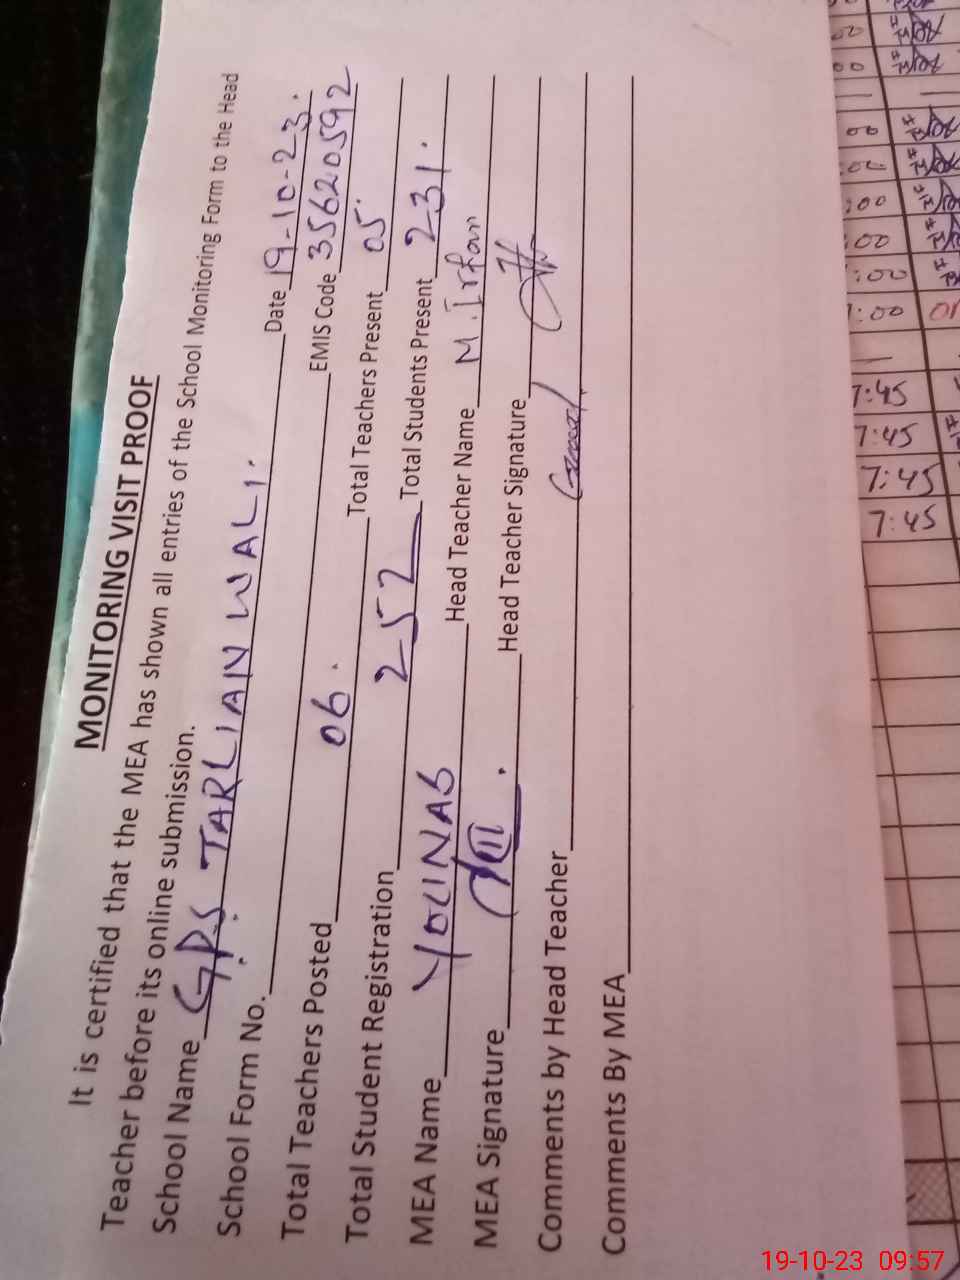 MONITORING VISIT PROOF
It is certified that the MEA has shown all entries of the School Monitoring Form to the Head
Teacher before its online submission.
School Name GPS TARLIAN WALI. Date 19-10-23.
School Form No. EMIS Code 35620592
Total Teachers Posted 06. Total Teachers Present 05.
Total Student Registration 252 Total Students Present 231.
MEA Name YOUNAS Head Teacher Name M. Irfan
MEA Signature Head Teacher Signature
Comments by Head Teacher Good
Comments By MEA
:00
:00
:00
:00
7:45
7:45
7:45
7:45
19-10-23 09:57